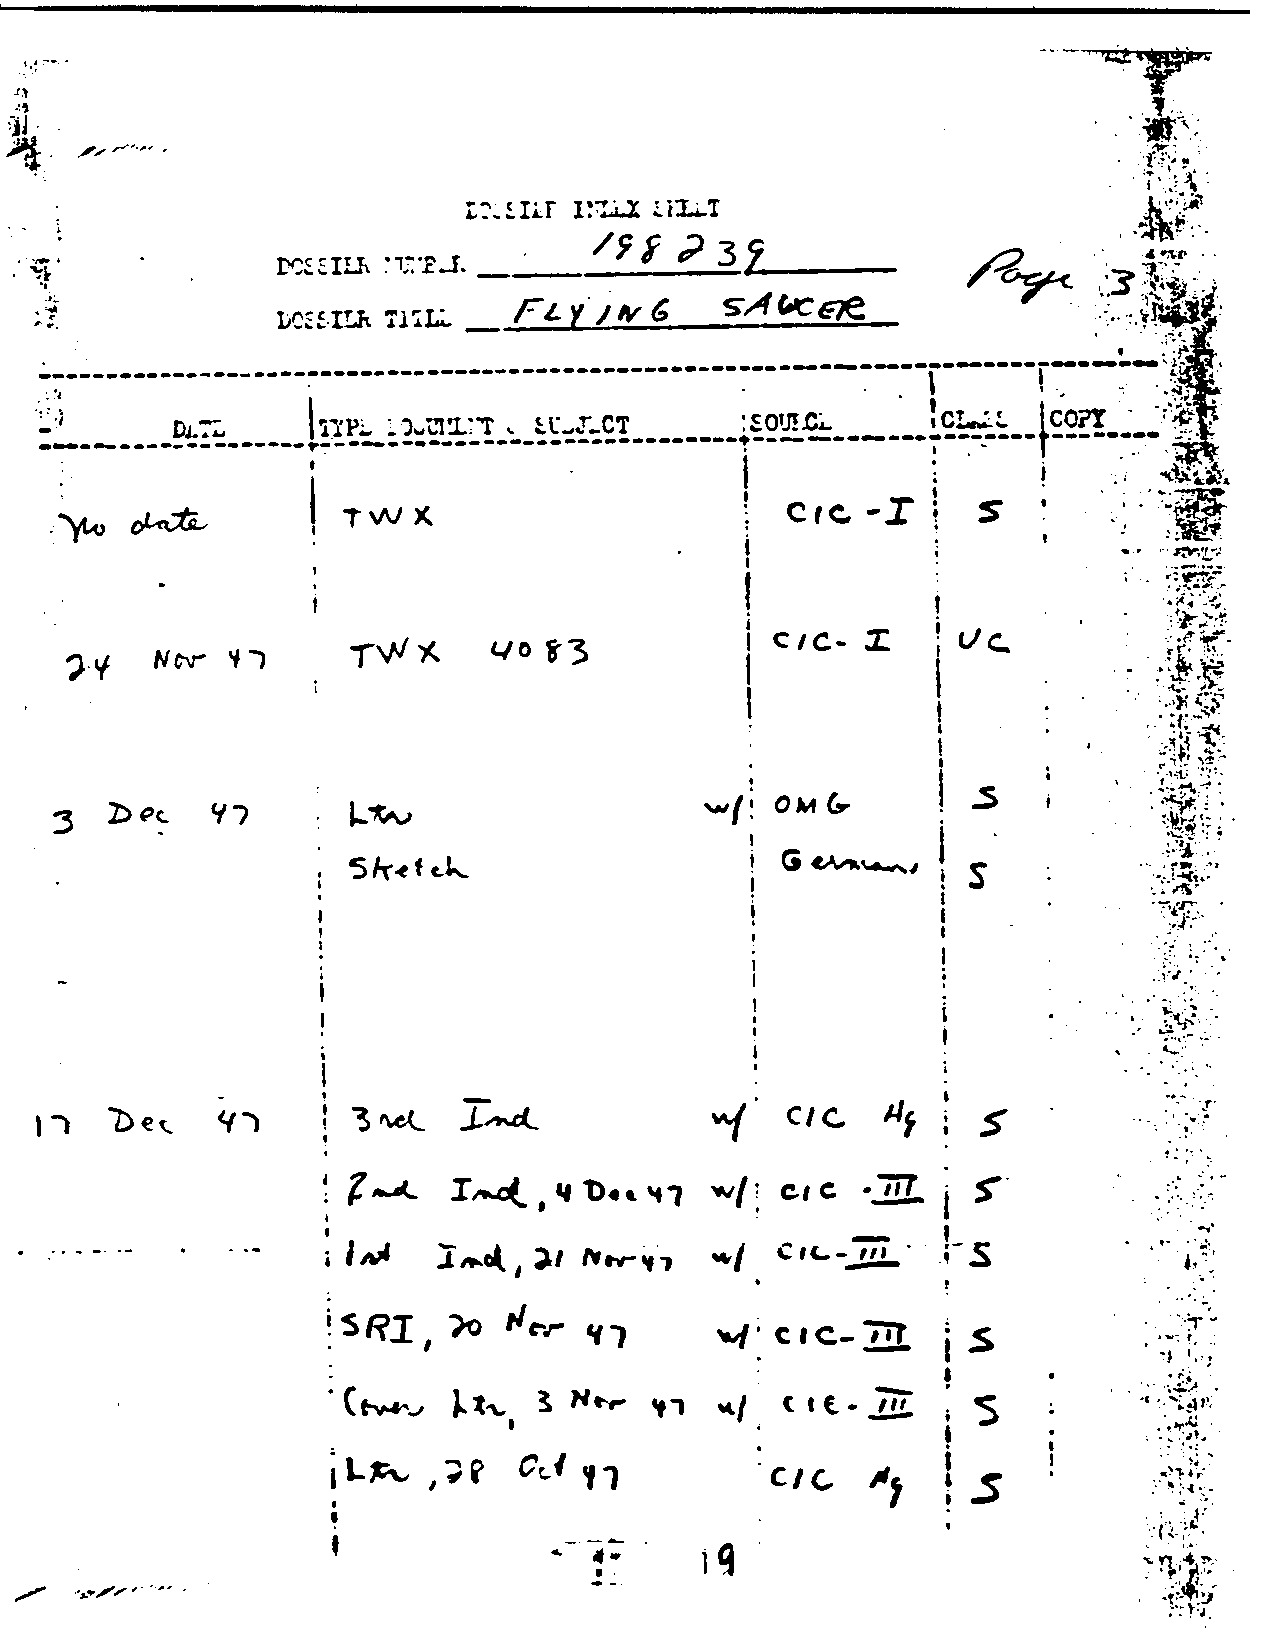 DOSSIER INDEX SHEET
DOSSIER NUMBER 198239
Page 3
DOSSIER TITLE FLYING SAUCER
DATE TYPE DOCUMENT & SUBJECT SOURCE CLASS COPY
No date TWX CIC - I S
24 Nov 47 TWX 4083 CIC - I UC
3 Dec 47 Ltr w/ OMG S
Sketch Germany S
17 Dec 47 3rd Ind w/ CIC Hq S
2nd Ind, 4 Dec 47 w/ CIC - III S
1st Ind, 21 Nov 47 w/ CIC - III S
SRI, 20 Nov 47 w/ CIC - III S
Cover Ltr, 3 Nov 47 w/ CIC - III S
Ltr, 28 Oct 47 CIC Hq S
19